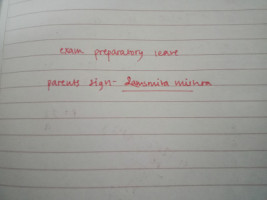 exam preparatory leave
parents sign- Sasmita mishra